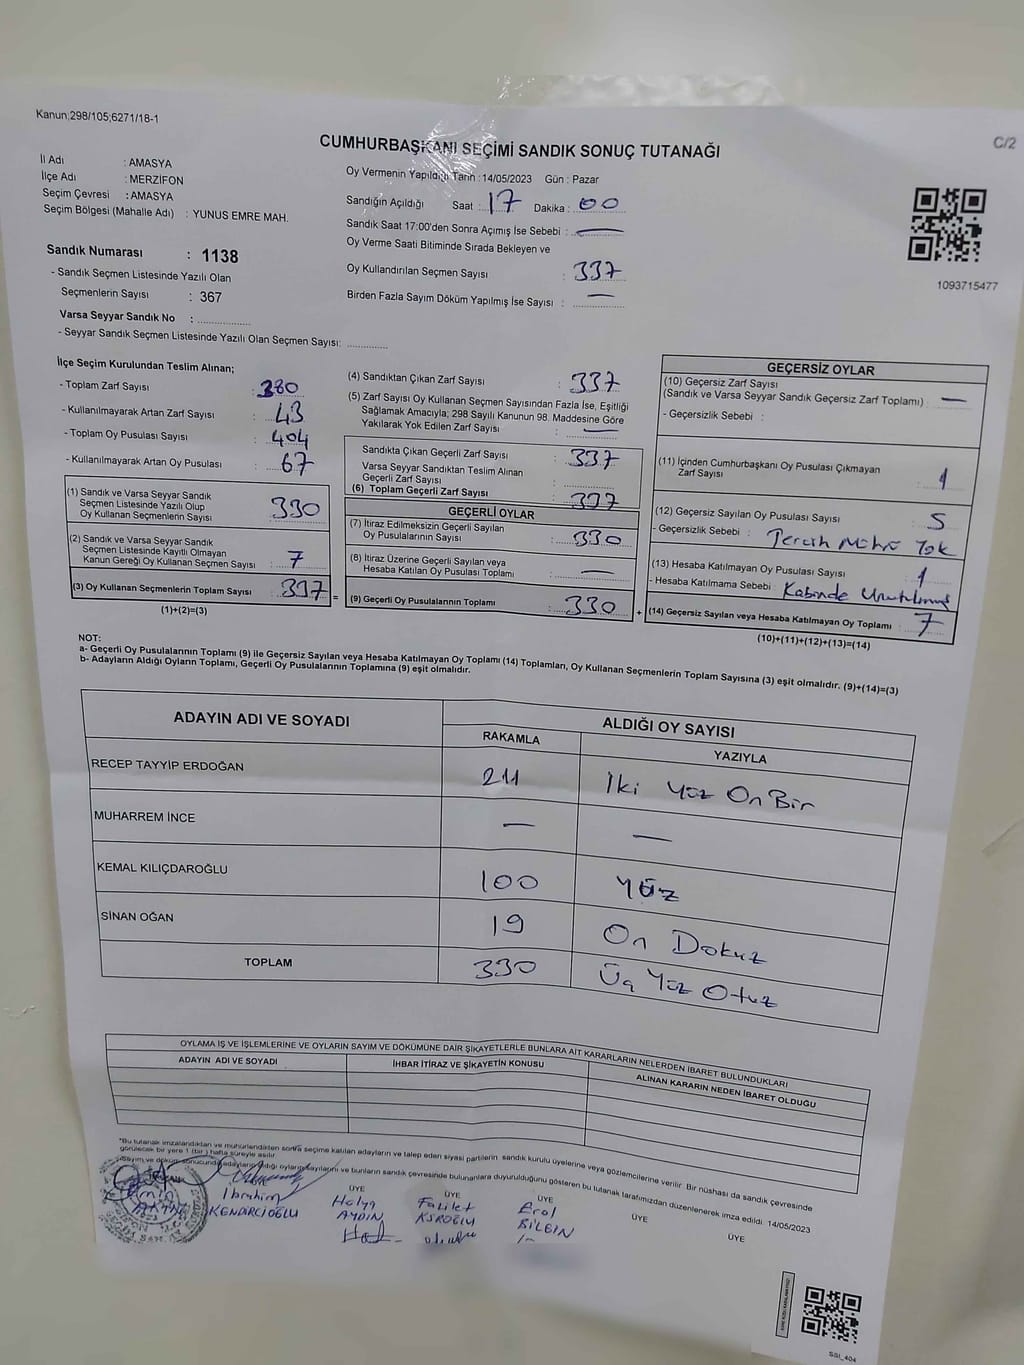 Kanun;298/105;6271/18-1
C/2
CUMHURBAŞKANI SEÇİMİ SANDIK SONUÇ TUTANAĞI
İl Adı : AMASYA
İlçe Adı : MERZİFON
Seçim Çevresi : AMASYA
Seçim Bölgesi (Mahalle Adı) : YUNUS EMRE MAH.
Sandık Numarası : 1138
- Sandık Seçmen Listesinde Yazılı Olan
Seçmenlerin Sayısı : 367
Varsa Seyyar Sandık No :
- Seyyar Sandık Seçmen Listesinde Yazılı Olan Seçmen Sayısı:
Oy Vermenin Yapıldığı Tarih :14/05/2023 Gün : Pazar
Sandığın Açıldığı Saat : 17 Dakika : 00
Sandık Saat 17:00'den Sonra Açımış İse Sebebi : —
Oy Verme Saati Bitiminde Sırada Bekleyen ve
Oy Kullandırılan Seçmen Sayısı : 337
Birden Fazla Sayım Döküm Yapılmış İse Sayısı : —
1093715477
İlçe Seçim Kurulundan Teslim Alınan;
- Toplam Zarf Sayısı : 380
- Kullanılmayarak Artan Zarf Sayısı : 43
- Toplam Oy Pusulası Sayısı : 404
- Kullanılmayarak Artan Oy Pusulası : 67
(1) Sandık ve Varsa Seyyar Sandık
Seçmen Listesinde Yazılı Olup
Oy Kullanan Seçmenlerin Sayısı : 330
(2) Sandık ve Varsa Seyyar Sandık
Seçmen Listesinde Kayıtlı Olmayan
Kanun Gereği Oy Kullanan Seçmen Sayısı : 7
(3) Oy Kullanan Seçmenlerin Toplam Sayısı : 337 =
(1)+(2)=(3)
(4) Sandıktan Çıkan Zarf Sayısı : 337
(5) Zarf Sayısı Oy Kullanan Seçmen Sayısından Fazla İse, Eşitliği
Sağlamak Amacıyla; 298 Sayılı Kanunun 98. Maddesine Göre
Yakılarak Yok Edilen Zarf Sayısı : —
Sandıkta Çıkan Geçerli Zarf Sayısı : 337
Varsa Seyyar Sandıktan Teslim Alınan
Geçerli Zarf Sayısı :
(6) Toplam Geçerli Zarf Sayısı : 337
GEÇERLİ OYLAR
(7) İtiraz Edilmeksizin Geçerli Sayılan
Oy Pusulalarının Sayısı : 330
(8) İtiraz Üzerine Geçerli Sayılan veya
Hesaba Katılan Oy Pusulası Toplamı : —
(9) Geçerli Oy Pusulalarının Toplamı : 330 +
GEÇERSİZ OYLAR
(10) Geçersiz Zarf Sayısı
(Sandık ve Varsa Seyyar Sandık Geçersiz Zarf Toplamı) : —
- Geçersizlik Sebebi :
(11) İçinden Cumhurbaşkanı Oy Pusulası Çıkmayan
Zarf Sayısı : 1
(12) Geçersiz Sayılan Oy Pusulası Sayısı : 5
- Geçersizlik Sebebi : Tercih Mührü Yok
(13) Hesaba Katılmayan Oy Pusulası Sayısı : 1
- Hesaba Katılmama Sebebi : Kabinde Unutulmuş
(14) Geçersiz Sayılan veya Hesaba Katılmayan Oy Toplamı : 7
(10)+(11)+(12)+(13)=(14)
NOT:
a- Geçerli Oy Pusulalarının Toplamı (9) ile Geçersiz Sayılan veya Hesaba Katılmayan Oy Toplamı (14) Toplamları, Oy Kullanan Seçmenlerin Toplam Sayısına (3) eşit olmalıdır. (9)+(14)=(3)
b- Adayların Aldığı Oyların Toplamı, Geçerli Oy Pusulalarının Toplamına (9) eşit olmalıdır.
ADAYIN ADI VE SOYADI ALDIĞI OY SAYISI
RAKAMLA YAZIYLA
RECEP TAYYİP ERDOĞAN 211 İki Yüz On Bir
MUHARREM İNCE — —
KEMAL KILIÇDAROĞLU 100 Yüz
SİNAN OĞAN 19 On Dokuz
TOPLAM 330 Üç Yüz Otuz
OYLAMA İŞ VE İŞLEMLERİNE VE OYLARIN SAYIM VE DÖKÜMÜNE DAİR ŞİKAYETLERLE BUNLARA AİT KARARLARIN NELERDEN İBARET BULUNDUKLARI
ADAYIN ADI VE SOYADI İHBAR İTİRAZ VE ŞİKAYETİN KONUSU ALINAN KARARIN NEDEN İBARET OLDUĞU
*Bu tutanak imzalandıktan ve mühürlendikten sonra seçime katılan adayların ve talep eden siyasi partilerin sandık kurulu üyelerine veya gözlemcilerine verilir. Bir nüshası da sandık çevresinde
görülecek bir yere 1 (bir) hafta süreyle asılır.
Sayım ve döküm sonucunda adayların aldığı oyların sayılarını ve bunların sandık çevresinde bulunanlara duyurulduğunu gösteren bu tutanak tarafımızdan düzenlenerek imza edildi. 14/05/2023
ÜYE ÜYE ÜYE ÜYE ÜYE
Emin İbrahim Hülya Fazilet Erol
KENDİRCİOĞLU AYDIN BİLGİN
SSI_404